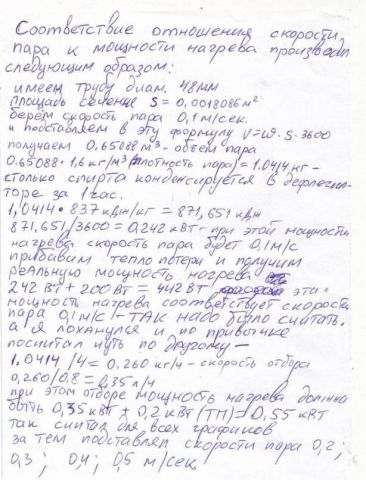 Соответствие отношения скорости
пара к мощности нагрева произвёл
следующим образом:
имеем трубу диам. 48мм
площадь сечения S = 0,0018086 м²
берем скорость пара 0,1 м/сек.
и подставляем в эту формулу V=W·S·3600
получаем 0,65088 м³ - объем пара
0.65088·1,6 кг/м³ (плотность пара) = 1.0414 кг -
столько спирта конденсируется в дефлегма-
торе за 1 час.
1,0414 · 837 кДж/кг = 871,651 кДж
871,651/3600 = 0.242 кВт - при этой мощности
нагрева скорость пара будет 0,1 м/с
прибавим теплопотери и получим
реальную мощность нагрева
242 Вт + 200 Вт = 442 Вт эта
мощность нагрева соответствует скорости
пара 0,1 м/с - ТАК НАДО было считать.
а я лоханулся и по привычке
посчитал чуть по другому -
1,0414 /4 = 0.260 кг/ч - скорость отбора
0,260/0.8 = 0,35 л/ч
при этом отборе мощность нагрева должна
быть 0,35 кВт + 0,2 кВт (ТП) = 0,55 кВт
так считал для всех графиков
за тем подставлял скорости пара 0,2;
0,3; 0,4; 0,5 м/сек